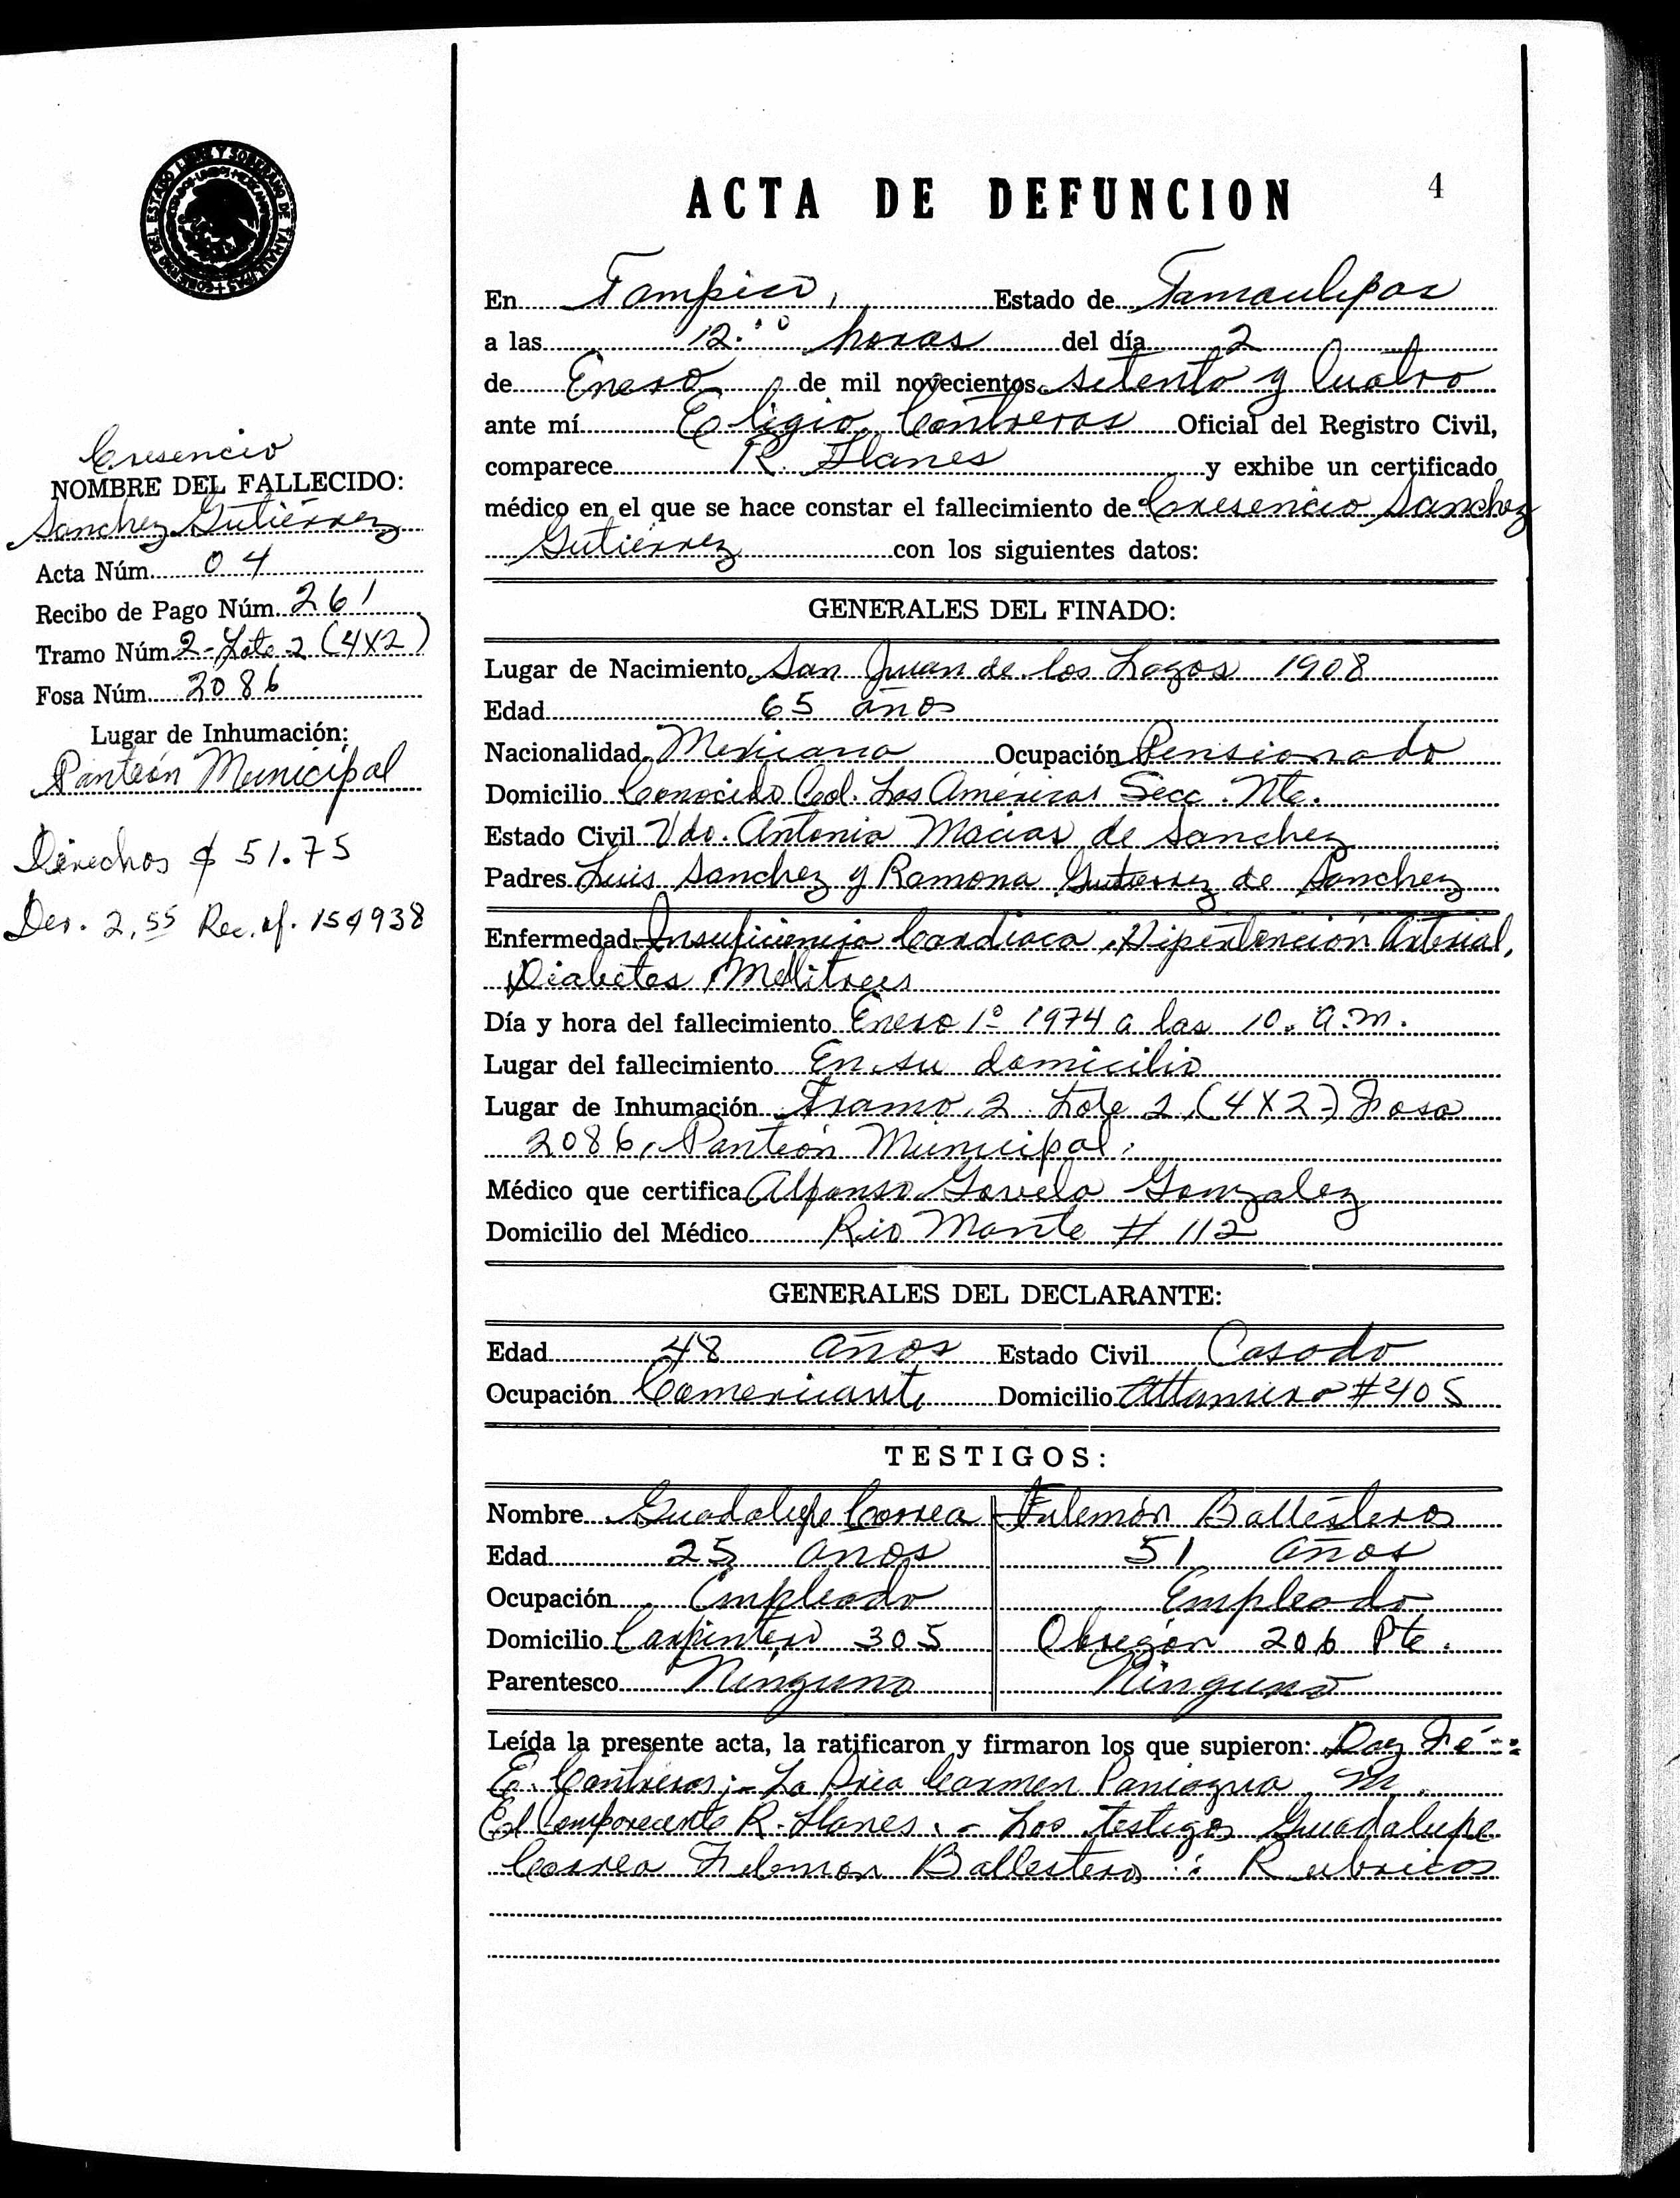 ACTA DE DEFUNCION
4
En Tampico, Estado de Tamaulipas
a las 12.00 horas del día 2
de Enero de mil novecientos setenta y Cuatro
ante mí Eligio Contreras Oficial del Registro Civil,
comparece R. Llanes y exhibe un certificado
médico en el que se hace constar el fallecimiento de Cresencio Sanchez
Gutierrez con los siguientes datos:
Cresencio
NOMBRE DEL FALLECIDO:
Sanchez Gutiérrez
Acta Núm. 04
Recibo de Pago Núm. 261
Tramo Núm. 2-Lote 2 (4X2)
Fosa Núm. 2086
Lugar de Inhumación:
Panteón Municipal
Derechos $ 51.75
Der. 2.55 Rec. of. 154938
GENERALES DEL FINADO:
Lugar de Nacimiento San Juan de los Lagos 1908
Edad 65 años
Nacionalidad Mexicana Ocupación Pensionado
Domicilio Conocido Col. Las Américas Secc. Nte.
Estado Civil Vdo. Antonia Macias de Sanchez
Padres Luis Sanchez y Ramona Gutierrez de Sanchez
Enfermedad Insuficiencia Cardiaca, Hipertención Arterial,
Diabetes Mellitus
Día y hora del fallecimiento Enero 1º 1974 a las 10. a.m.
Lugar del fallecimiento En su domicilio
Lugar de Inhumación Tramo 2 Lote 2 (4X2) Fosa
2086, Panteón Municipal.
Médico que certifica Alfonso Govela Gonzalez
Domicilio del Médico Rio Mante # 112
GENERALES DEL DECLARANTE:
Edad 48 años Estado Civil Casado
Ocupación Comerciante Domicilio Altamira #405
TESTIGOS:
Nombre Guadalupe Correa Filemón Ballesteros
Edad 25 años 51 años
Ocupación Empleado Empleado
Domicilio Carpintero 305 Obregón 206 Pte.
Parentesco Ninguno Ninguno
Leída la presente acta, la ratificaron y firmaron los que supieron: Doy Fé-:
E. Contreras;- La Sria Carmen Paniagua M.
El Compareciente R. Llanes.- Los testigos Guadalupe
Correa Filemon Ballesteros : Rubricas